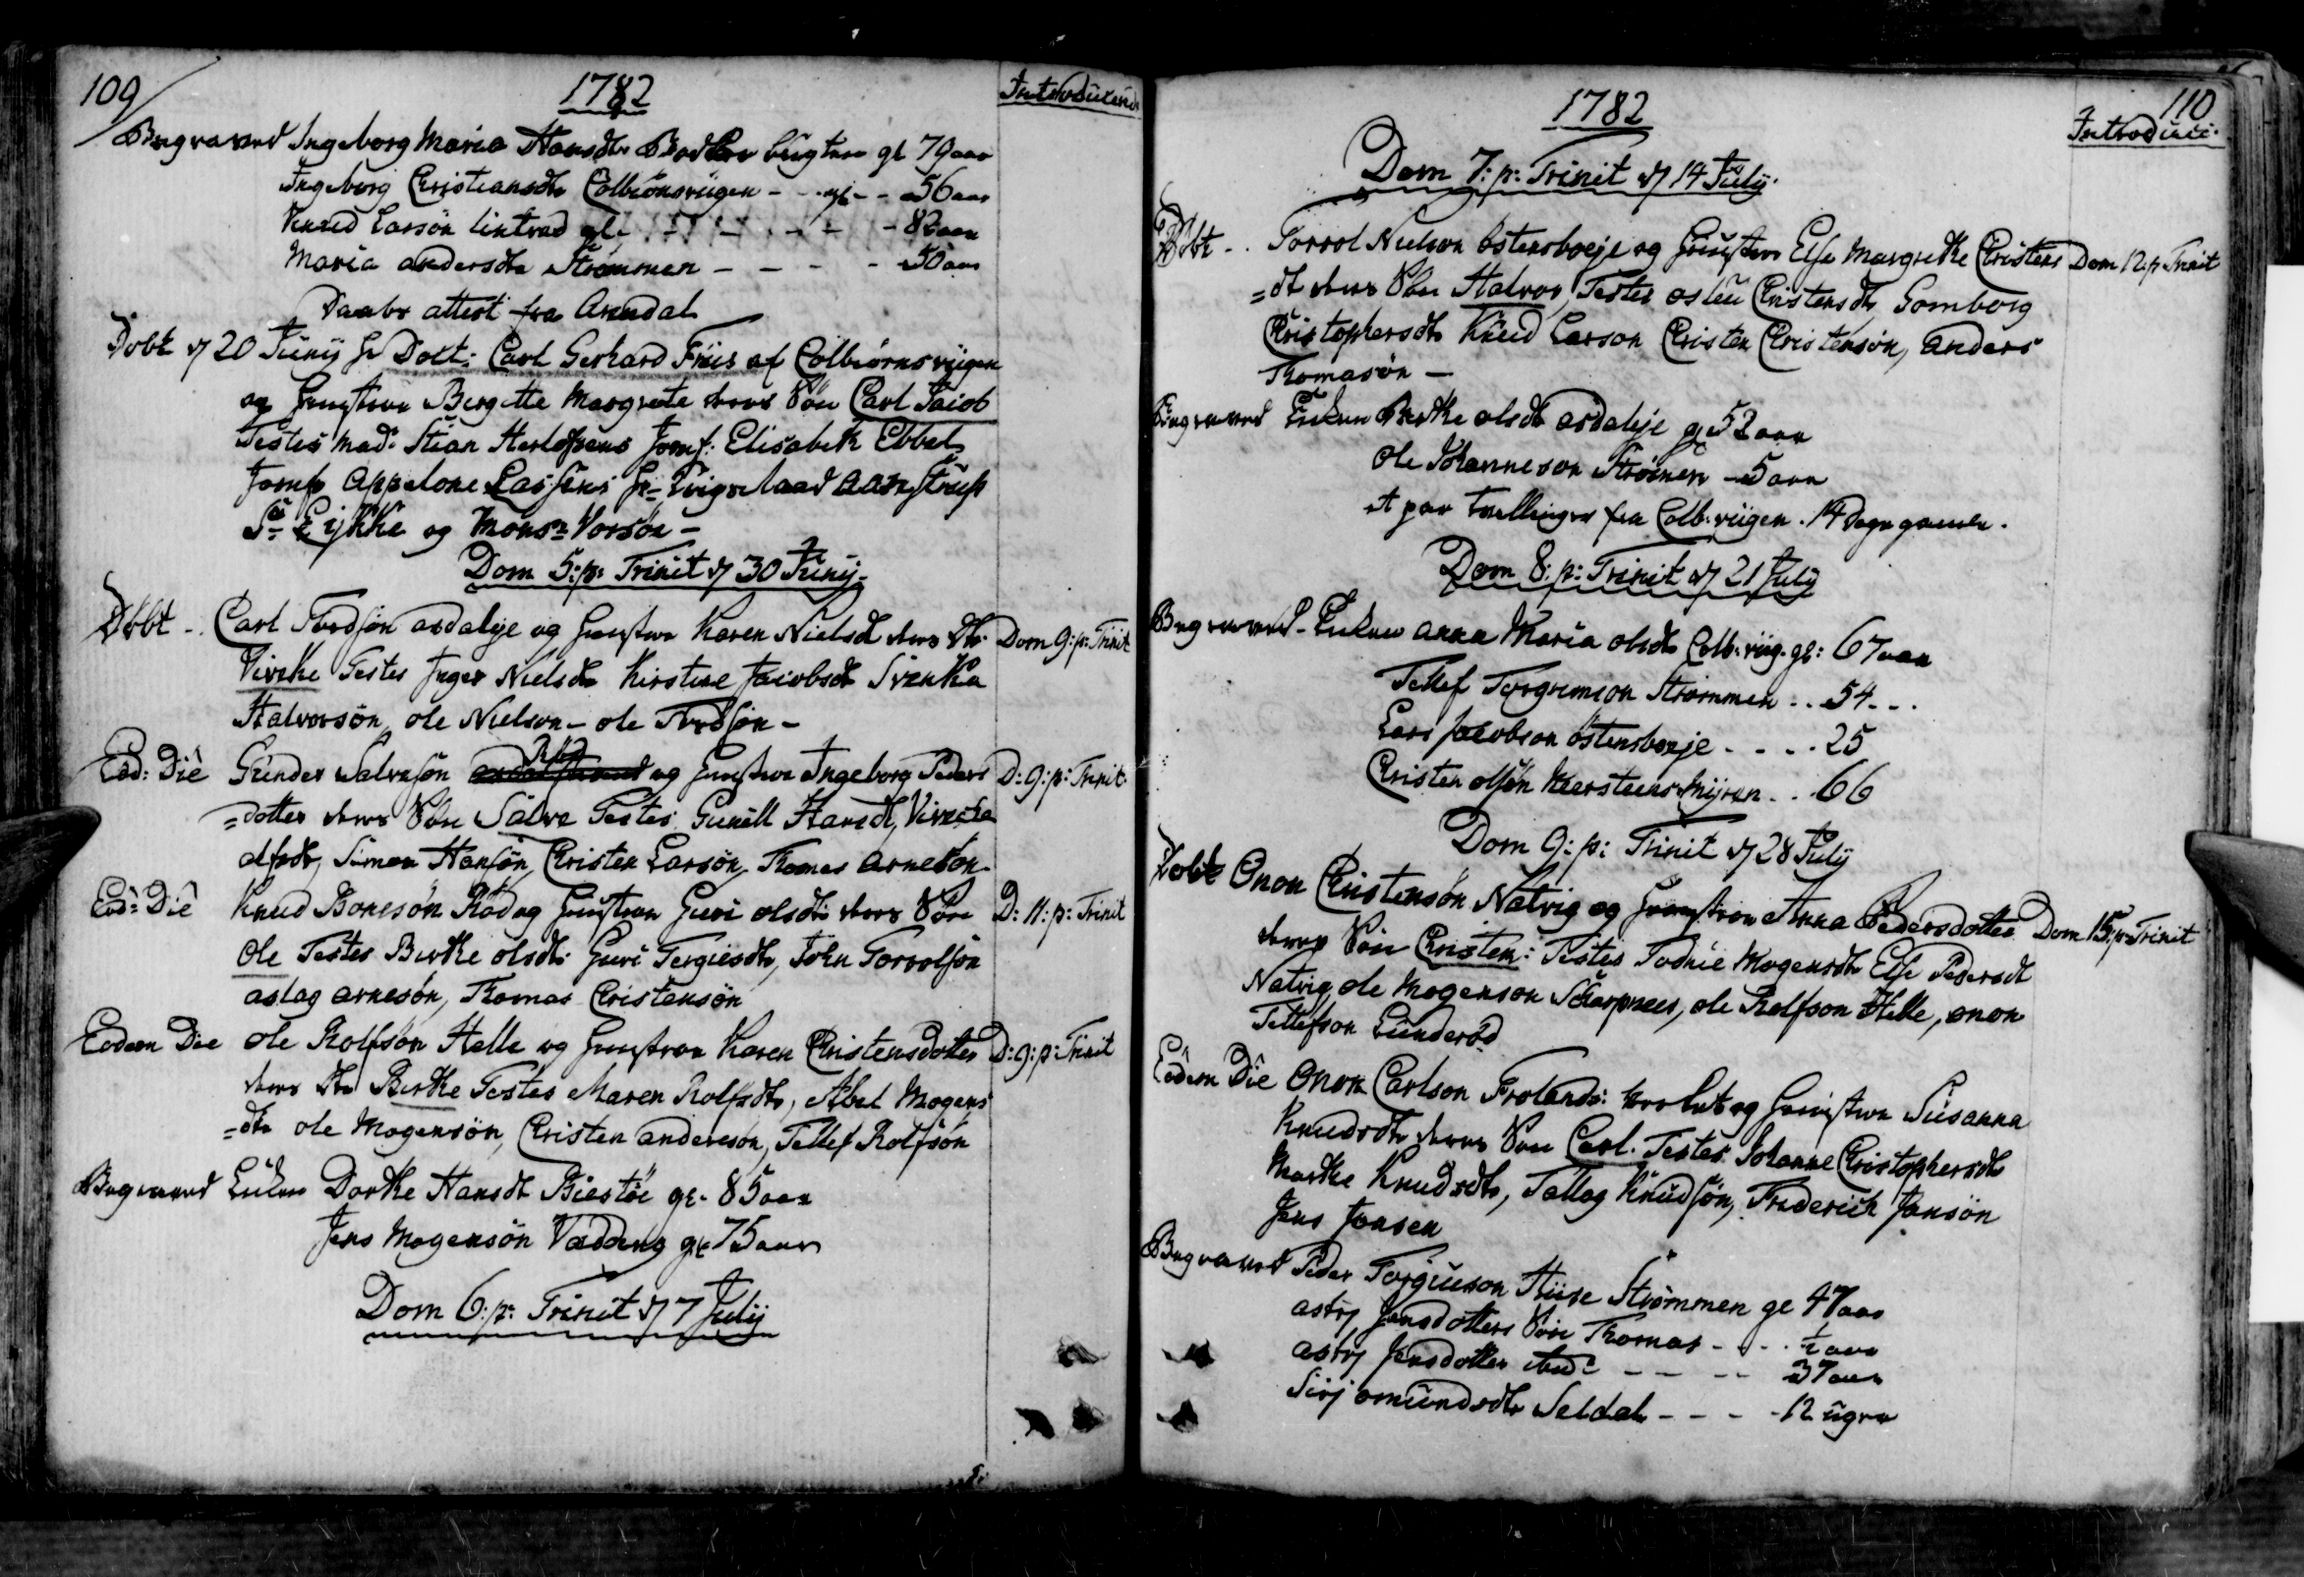 109
1782
Introducerede
Begraved Ingeborg Maria Hansdtr Bodker bugten gl 79 aar
Ingeborg Christiansdtr Colbiönsviigen - - gl - - 56 aar
Knud Larsön Lintved gl - - - - - 82 aar
Maria Andersdtr Strømmen - - - - 50 aar
Daabs attest fra Arendal
Döbt d 20 Junij Hr Doct: Carl Gerhard Friis af Colbiörnsviigen
og Hustrue Bergitte Margrete deres Sön Carl Jacob
Testes Mad: Stian Herlofsens Jomf: Elisabeth Ebbel
Jomfr Appelone Lassens Hr Krigsraad Aamstrup
Sr Lykke og Monsr Vorsöe -
Dom 5: p: Trinit d 30 Junij
Döbt - Carl Tordsön Asdaleje og Hustrue Karen Nielsdtr deres dtr Dom 9: p: Trinit
Virche Testes Inger Nielsdtr Kirstine Jacobsdtr Svenka
Halvorsön, Ole Nielson - Ole Tordsön -
Eod: Die Gunder Salvesön og Hustrue Ingeborg Peders D: 9: p: Trinit
=dotter deres Sön Salve Testes Gunild Hansdtr, Vireche
Simon Hansön, Christen Larsön, Thomas Arneson
Eod: Die Knud Bonesön Röd og Hustrue Guri Olsdtr deres Sön D: 11: p: Trinit
Ole Testes Birthe Olsdtr Guri Tergiesdtr, John Torrolfsön
Aslag Arnesön, Thomas Christensön
Eodem Die Ole Rolfsön Helle og Hustrue Karen Christensdotter D: 9: p: Trinit
deres dtr Birthe Testes Maren Rolfsdtr, Abel Mogens
=dtr Ole Mogensön, Christen Andersön, Tellef Rolfsön
Begraved Liken Dorthe Hansdtr Biestöe gl 85 aar
Jens Mogensön Vedding gl 75 aar
Dom 6: p: Trinit d 7 Julij
110
1782
Introduci:
Dom 7: p: Trinit d 14 Julij
Döbt - Torrol Nielson Östensboeje og Hustrue Else Margrethe Christens Dom 12: p: Trinit
=dtr deres Sön Halvor, Testes Aslau Christensdtr Gomborg
Christophersdtr Knud Larson Christen Christensön, Anders
Thomasön -
Begraved Liken Birthe Olsdtr Asdaleje gl 52 aar
Ole Johanneson Strömen - 5 aar
et par Tvellinger fra Colb: viigen. 14 Dage gamle.
Dom 8: p: Trinit d 21 Julij
Begraved - Liken Anna Maria Olsdtr Colb: viig. gl: 67 aar
Tellef Torgrimson Strømmen - - 54 - -
Lars Jacobson Östensboeje - - - - 25
Christen Olsön Keersteensmyren - - 66
Dom 9: p: Trinit d 28 Julij
Döbt Onon Christensön Natvig og Hustrue Anna Pedersdotter Dom 15: p: Trinit
deres Sön Christen: Testes Todnie Mogensdtr Else Pedersdtr
Natvig Ole Mogenson Skarpnes, Ole Rolfson Helle, Onon
Tellefson Lunderöd
Eodem Die Onon Carlson Frolands: og Hustrue Susanna
Knudsdtr deres Sön Carl. Testes Johanne Christophersdtr
Marthe Knudsdtr, Tallag Knudsön, Friderich Jansön
Jens Jensen
Begraved Peder Torgiuson Hiise Strömmen gl 47 aar
Astrj Jensdotters Sön Thomas - - - - ½ aar
Astrj Jensdotter ibid: - - - - 37 aar
Sirj Omundsdtr Seldal - - - - 12 uger